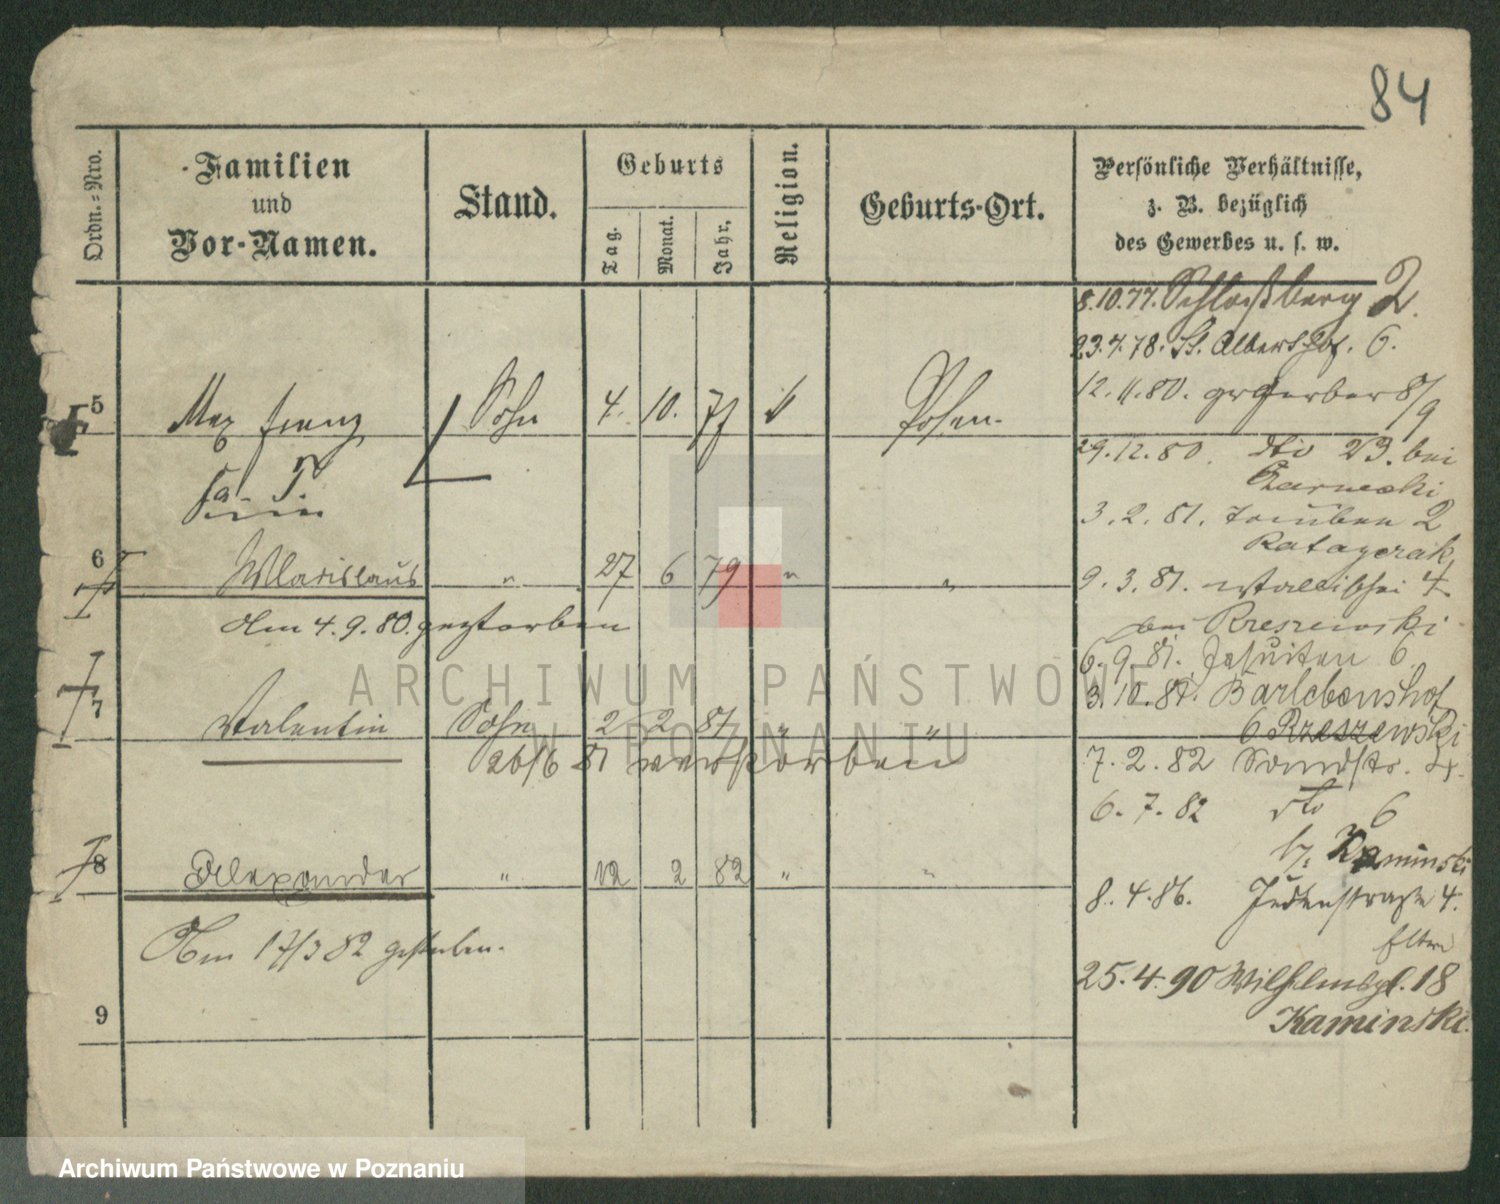 84
Ordn.-Nro.
Familien
und
Vor-Namen.
Stand.
Geburts
Tag.
Monat.
Jahr,
Religion.
Geburts-Ort.
Persönliche Verhältnisse,
z. B. bezüglich
des Gewerbes u. s. w.
8.10.77. Schloßberg 2.
23.4.78. St. Albertshof. 6.
12.11.80. gr Gerber 8/9
5 Max Franz Sohn 4. 10. 77 k Posen.
29.12.80. dto 23. bei
Czarnecki
3.2.81. Tauben 2
Ratayczak
6 Wladislaus " 27 6 79 " "
9.3.81. Wallischei 4
Am 4.9.80. gestorben
bei Rzeszewski
6.9.81. Jesuiten 6.
3.10.81. Barlebenshof
6 Rzeszewski
7 Valentin Sohn 2 2 81 " "
26/6 81 verstorben
7.2.82 Sandstr. 4.
6.7.82 dto 6
b/. Kaminski
8 Alexander " 12 2 82 " "
8.4.86. Judenstraße 4.
Eltern
Am 17/3 82 gestorben.
25.4.90 Wilhelmspl. 18
Kaminski.
9
ARCHIWUM PAŃSTWOWE
W POZNANIU
Archiwum Państwowe w Poznaniu